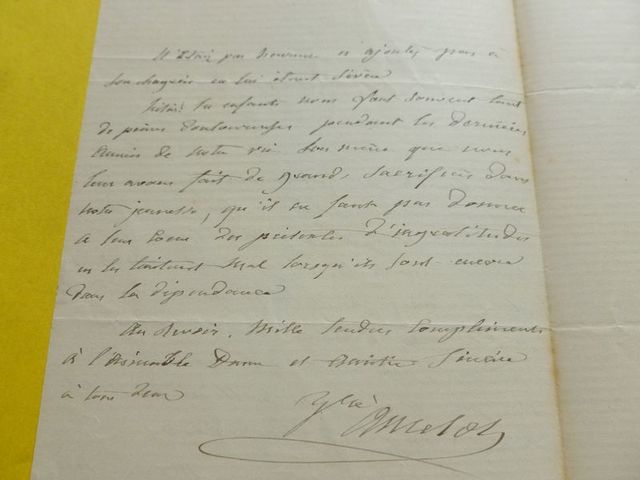 pas et n'ajoutez pas à
son chagrin en lui étant sévère
les enfants nous font souvent tant
de peines douloureuses pendant les dernières
années de notre vie lors même que nous
leur avons fait de grands sacrifices dans
notre jeunesse, qu'il ne faut pas donner
à leur coeur des prétextes d'ingratitudes
en les traitant mal lorsqu'ils sont encore
dans la dépendance
Au revoir. Mille tendres compliments
à l'aimable Dame et amitié sincère
à tous deux
Ancelot